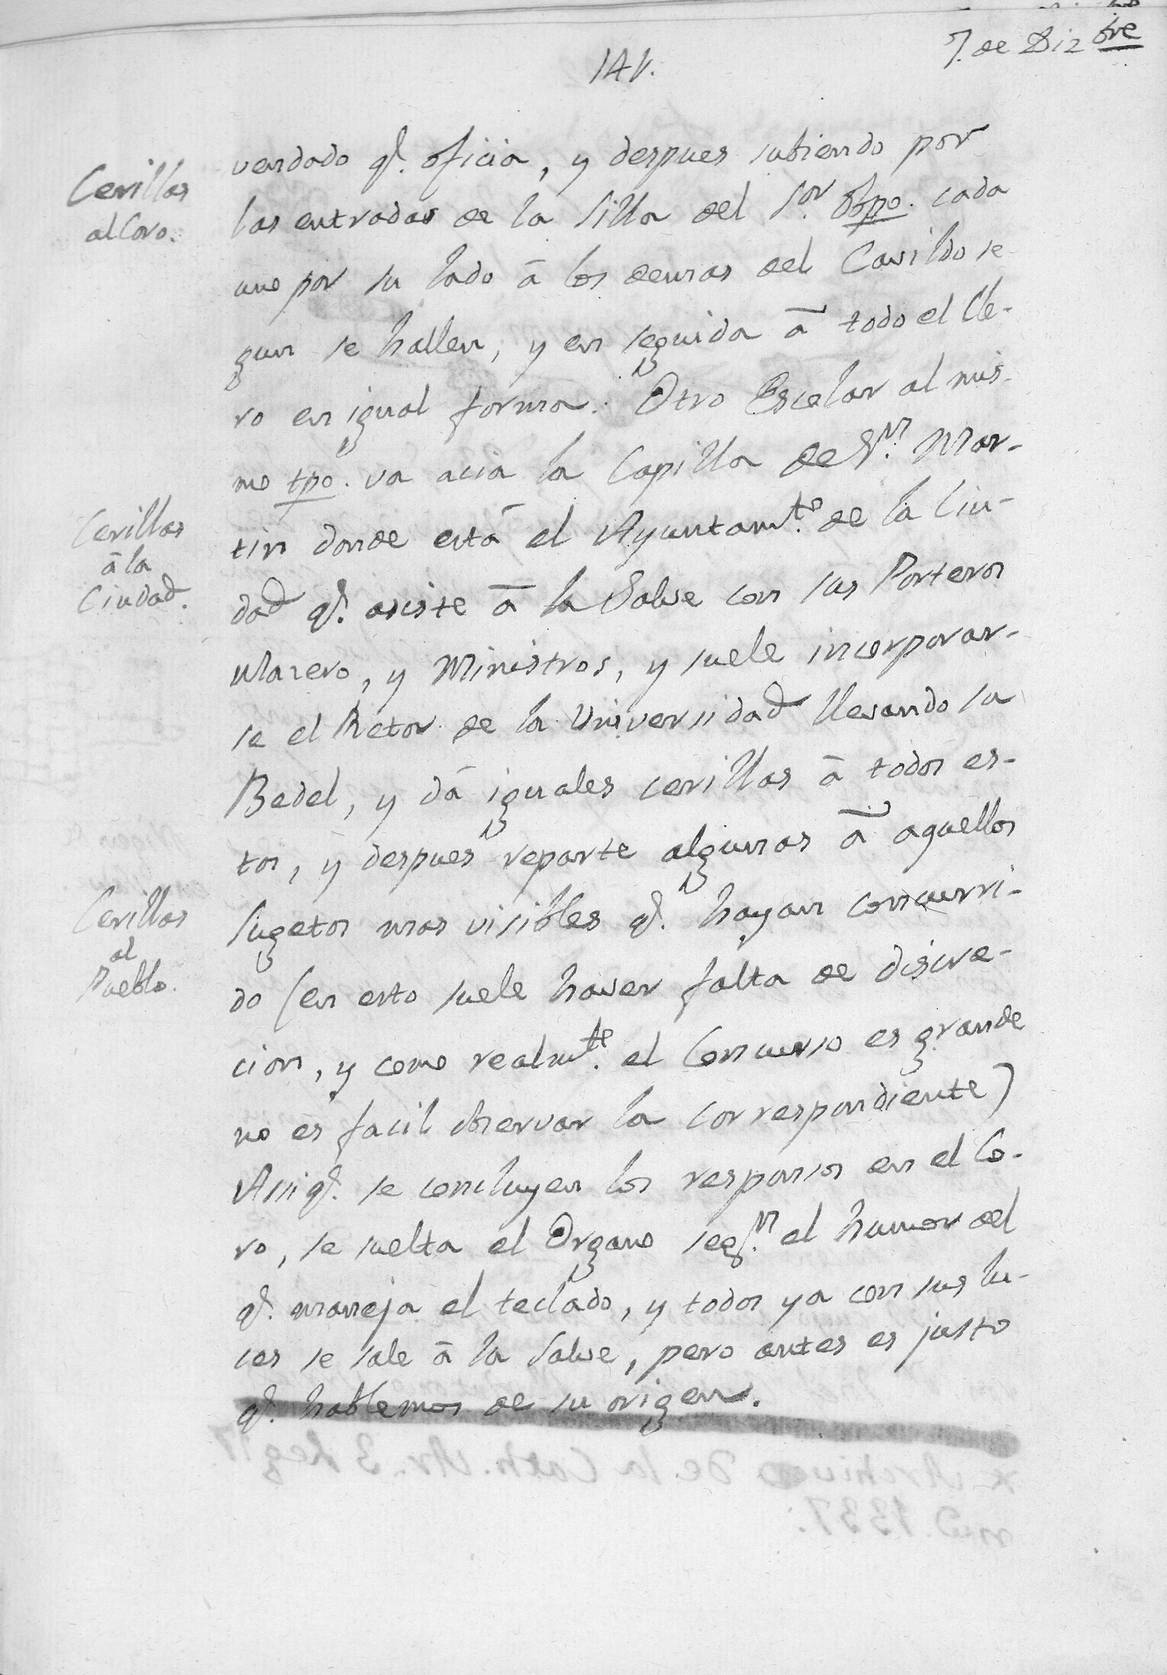 7. de Diz bre
141.
Cerillas
al Coro.
vendado q.e oficia, y despues subiendo por
las entradas de la silla del S.or Obpo. cada
uno por su lado â los demas del Cavildo se-
gun se hallen, y en seguida â todo el Cle-
ro en igual forma. Otro Escolar al mis-
mo tpo. va acia la Capilla de S.n Mar-
Cerillas
â la
Ciudad.
tin donde está el Ayuntam.to de la Ciu-
dad q.e asiste â la Salve con sus Porteros
Mazero, y Ministros, y suele incorporar-
se el Retor de la Universidad llevando su
Bedel, y dá iguales cerillas â todos es-
tos, y despues reparte algunas â aquellos
Cerillas
al
Pueblo.
sugetos mas visibles q.e hayan concurri-
do (en esto suele haver falta de discre-
cion, y como realm.te el Concurso es grande
no es facil observar la correspondiente)
Assi q.e se concluyen los responsos en el Co-
ro, se suelta el Organo seg.n el humor del
q.e maneja el teclado, y todos ya con sus lu-
ces se sale â la Salve, pero antes es justo
q.e hablemos de su origen.